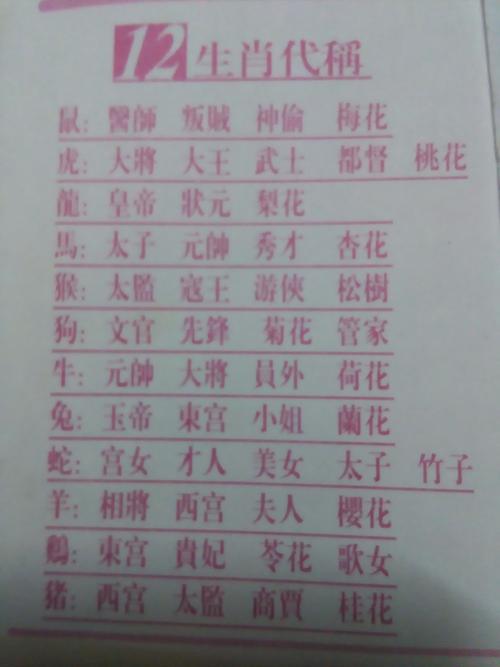 12生肖代稱
鼠: 醫師 叛賊 神偷 梅花
虎: 大將 大王 武士 都督 桃花
龍: 皇帝 狀元 梨花
馬: 太子 元帥 秀才 杏花
猴: 太監 寇王 游俠 松樹
狗: 文官 先鋒 菊花 管家
牛: 元帥 大將 員外 荷花
兔: 玉帝 東宮 小姐 蘭花
蛇: 宮女 才人 美女 太子 竹子
羊: 相將 西宮 夫人 櫻花
鷄: 東宮 貴妃 苓花 歌女
猪: 西宮 太監 商賈 桂花